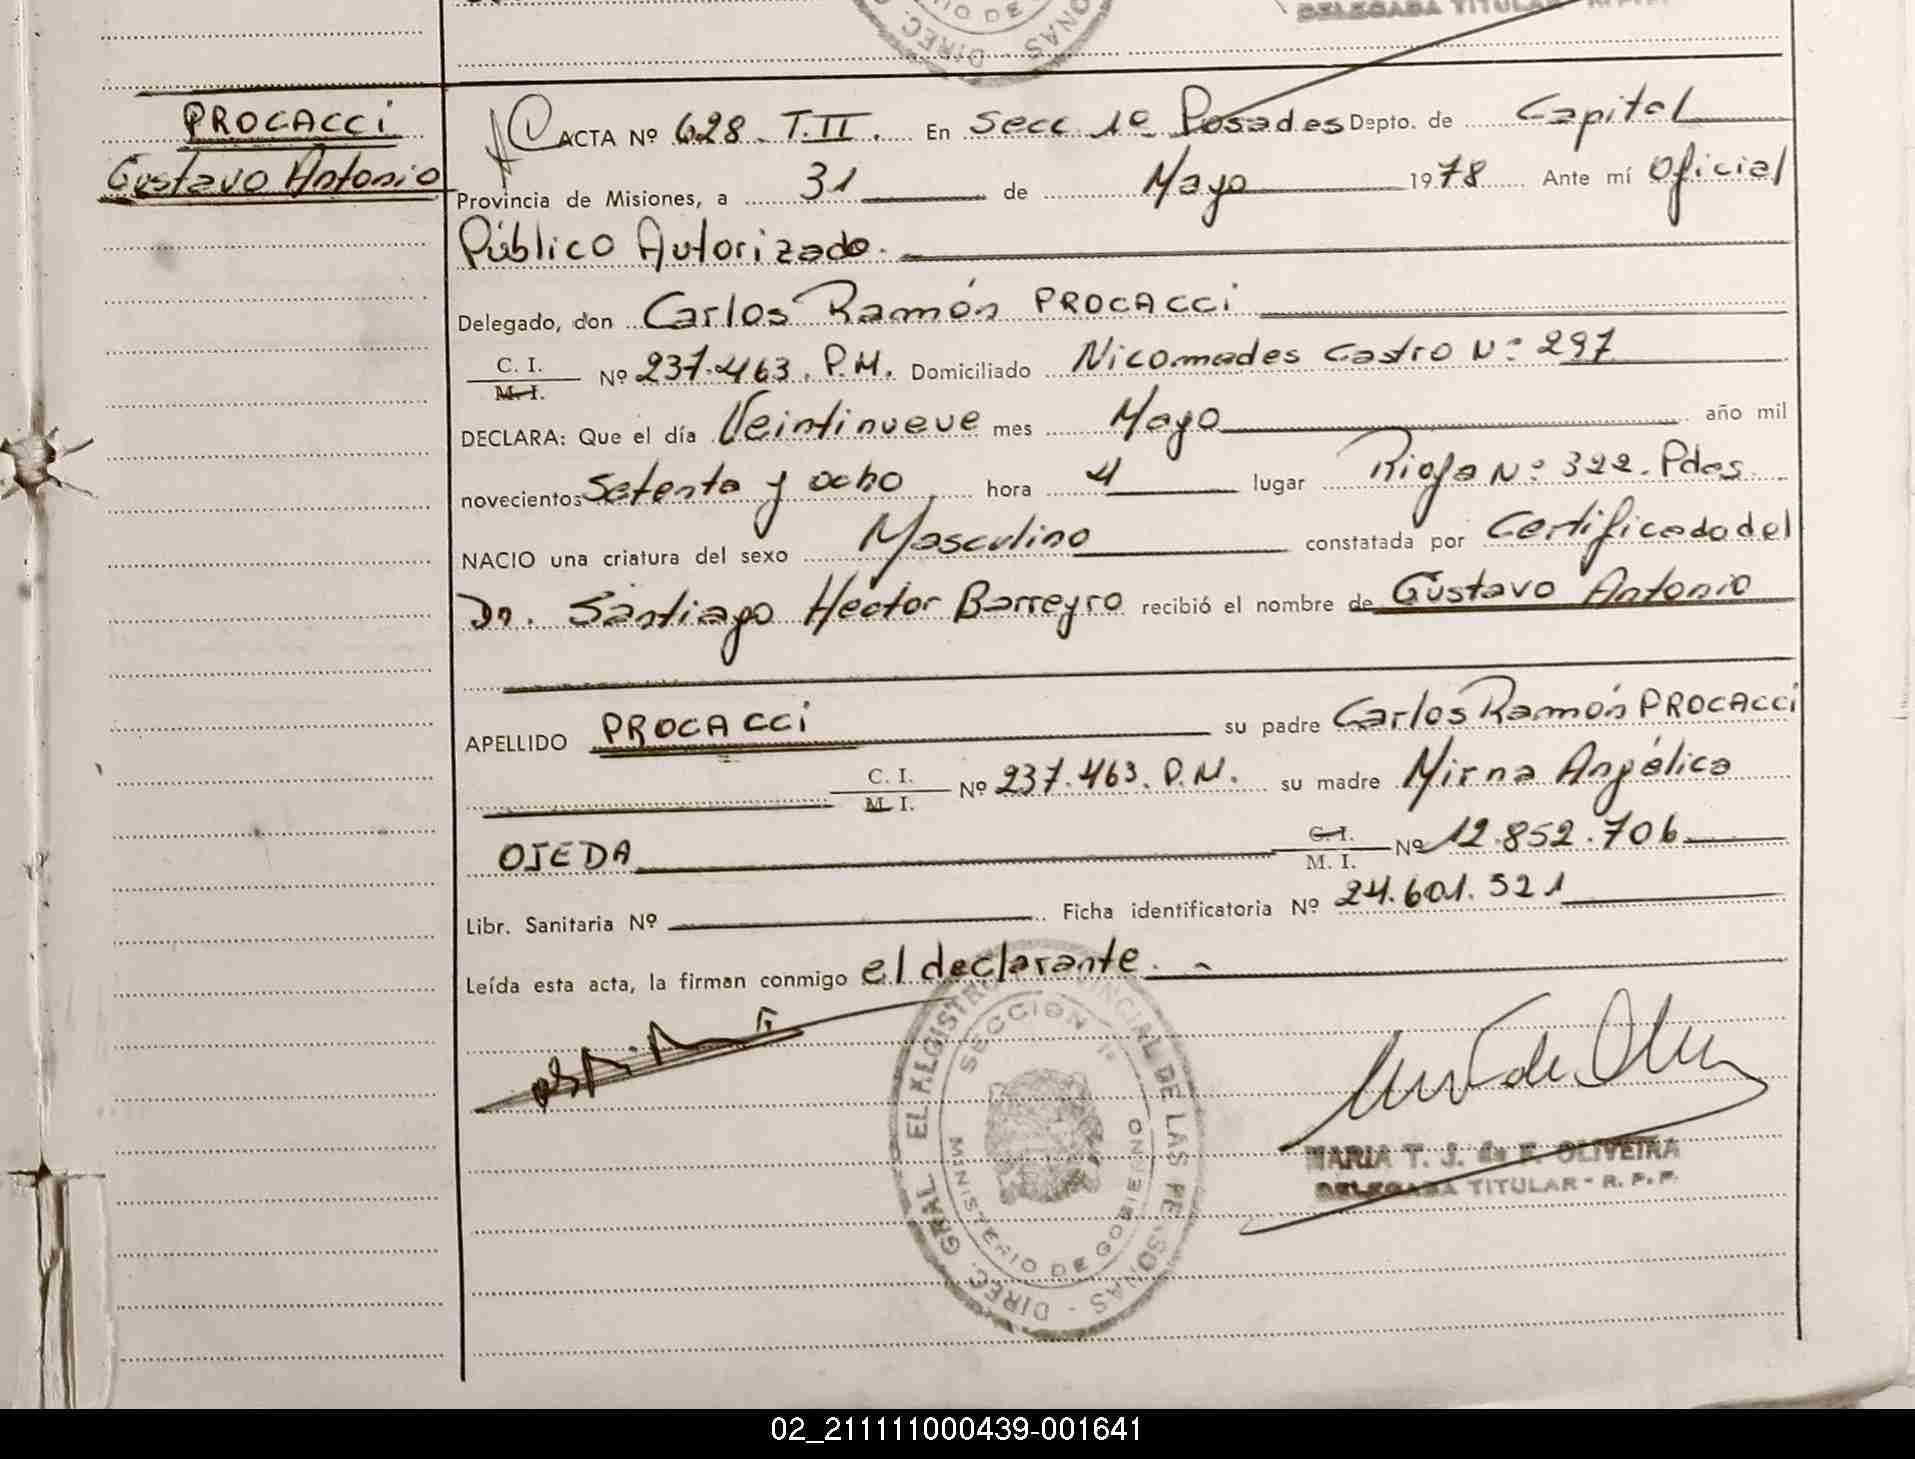 DELEGADA TITULAR
DIREC. ONAS
PROCACCI
Gustavo Antonio
ACTA Nº 628 T.II. En Secc 1º Posadas Depto. de Capital
Provincia de Misiones, a 31 de Mayo 1978 Ante mí Oficial
Público Autorizado.
Delegado, don Carlos Ramón PROCACCI
C. I.
M. I. Nº 237.463. P.M. Domiciliado Nicomades Castro Nº 297
DECLARA: Que el día Veintinueve mes Mayo año mil
novecientos Setenta y ocho, hora 4 lugar Rioja Nº 322. Pdas.
NACIO una criatura del sexo Masculino constatada por Certificado del
Dr. Santiago Hector Barreyro recibió el nombre de Gustavo Antonio
APELLIDO PROCACCI su padre Carlos Ramón PROCACCI
C. I.
M. I. Nº 237.463. P.M. su madre Mirna Angélica
OJEDA C. I.
M. I. Nº 12.852.706
Libr. Sanitaria Nº Ficha identificatoria Nº 24.601.521
Leída esta acta, la firman conmigo el declarante.
DIREC. GRAL DEL REGISTRO PROVINCIAL DE LAS PERSONAS
SECCION 1ª
MINISTERIO DE GOBIERNO
MARIA T. J. de F. OLIVEIRA
DELEGADA TITULAR - R. P. P.
02_211111000439-001641